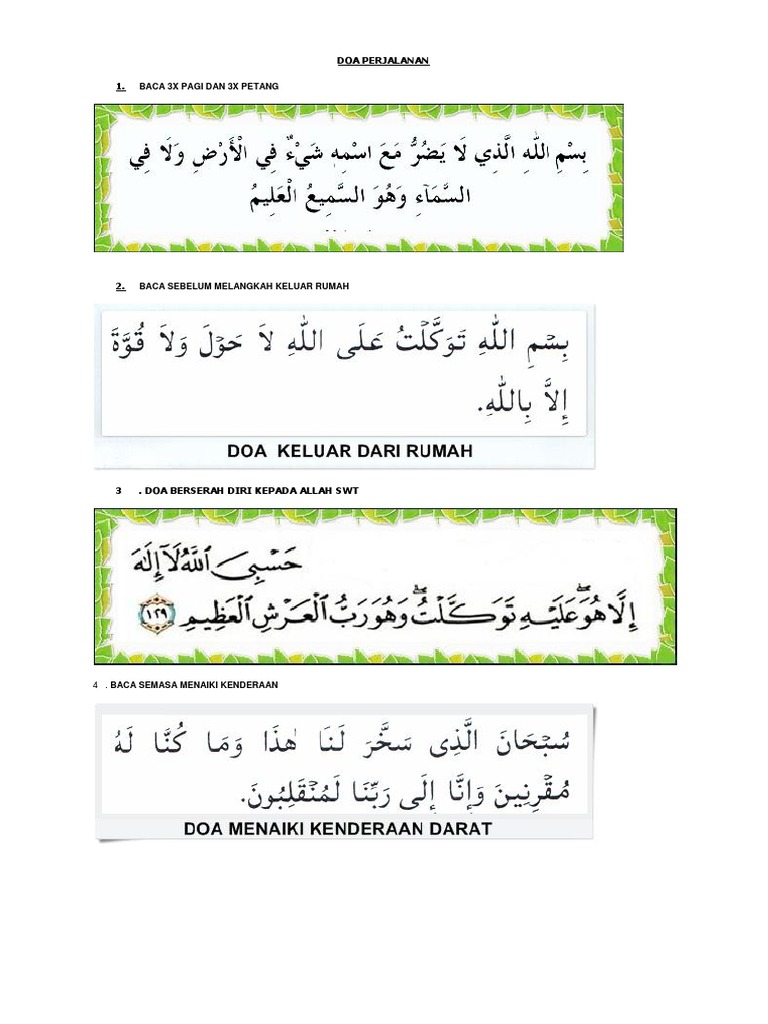 DOA PERJALANAN
1. BACA 3X PAGI DAN 3X PETANG
بِسْمِ اللهِ الَّذِي لَا يَضُرُّ مَعَ اسْمِهِ شَيْءٌ فِي الْأَرْضِ وَلَا فِي
السَّمَآءِ وَهُوَ السَّمِيعُ الْعَلِيمُ
2. BACA SEBELUM MELANGKAH KELUAR RUMAH
بِسْمِ اللهِ تَوَكَّلْتُ عَلَى اللهِ لاَ حَوْلَ وَلاَ قُوَّةَ
إِلاَّ بِاللهِ.
DOA KELUAR DARI RUMAH
3 . DOA BERSERAH DIRI KEPADA ALLAH SWT
حَسْبِىَ ٱللَّهُ لَآ إِلَٰهَ
إِلَّا هُوَ ۖ عَلَيْهِ تَوَكَّلْتُ ۖ وَهُوَ رَبُّ ٱلْعَرْشِ ٱلْعَظِيمِ ١٢٩
4 . BACA SEMASA MENAIKI KENDERAAN
سُبْحَانَ الَّذِى سَخَّرَ لَنَا هٰذَا وَمَا كُنَّا لَهُ
مُقْرِنِينَ وَإِنَّا إِلَى رَبِّنَا لَمُنْقَلِبُونَ.
DOA MENAIKI KENDERAAN DARAT